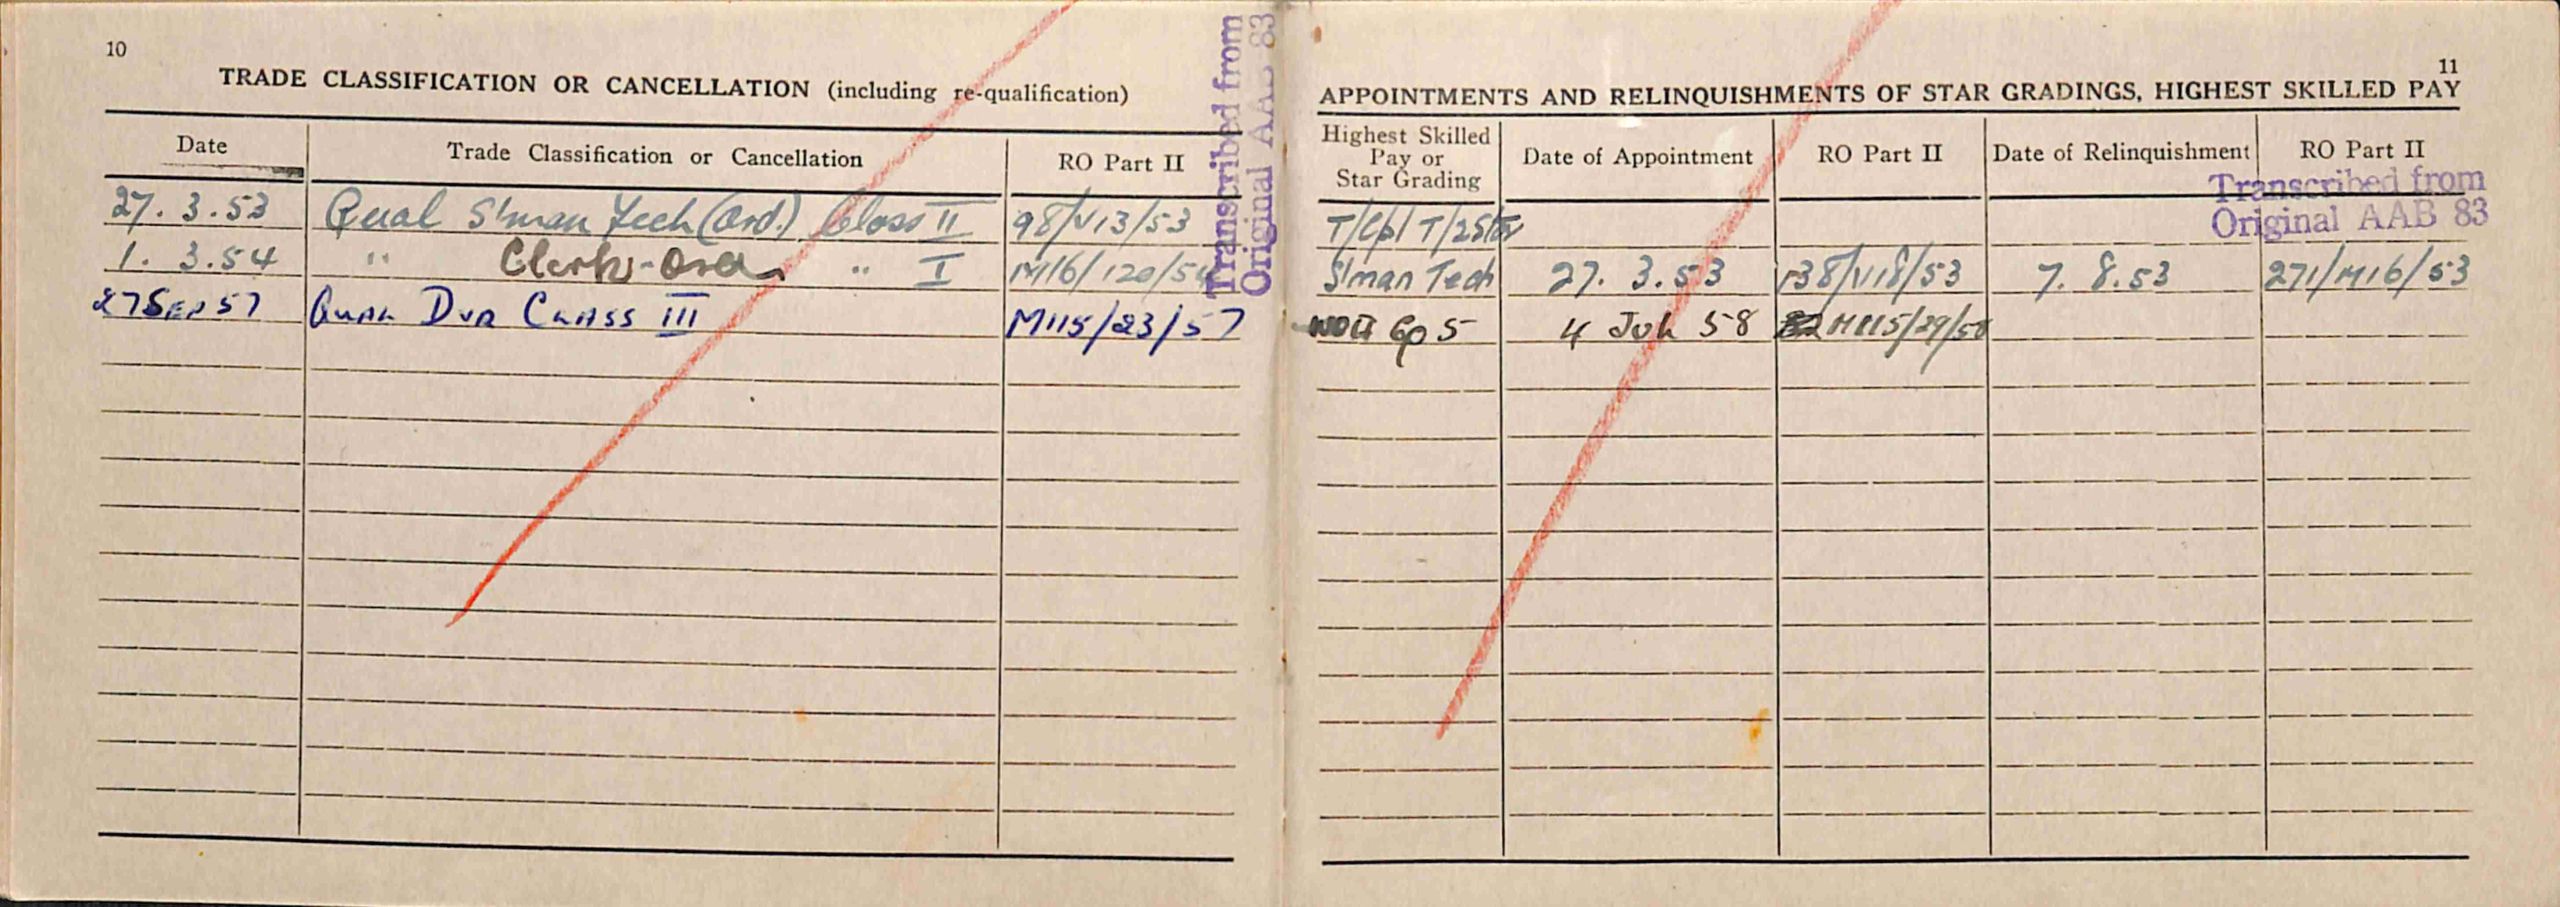 10
TRADE CLASSIFICATION OR CANCELLATION (including re-qualification)
Date Trade Classification or Cancellation RO Part II
27. 3. 53 Qual S'man Tech (Ord.) Class II 98/V13/53
1. 3. 54 " Clerks-Ord " I M16/120/54
27 SEP 57 QUAL DVR CLASS III M115/23/57
Transcribed from
Original AAB 83
11
APPOINTMENTS AND RELINQUISHMENTS OF STAR GRADINGS, HIGHEST SKILLED PAY
Highest Skilled Pay or Star Grading Date of Appointment RO Part II Date of Relinquishment RO Part II
Transcribed from
Original AAB 83
T/Cpl T/2 Star
S'man Tech 27. 3. 53 138/V18/53 7. 8. 53 271/M16/53
WOII Gp 5 4 JUL 58 M115/29/58